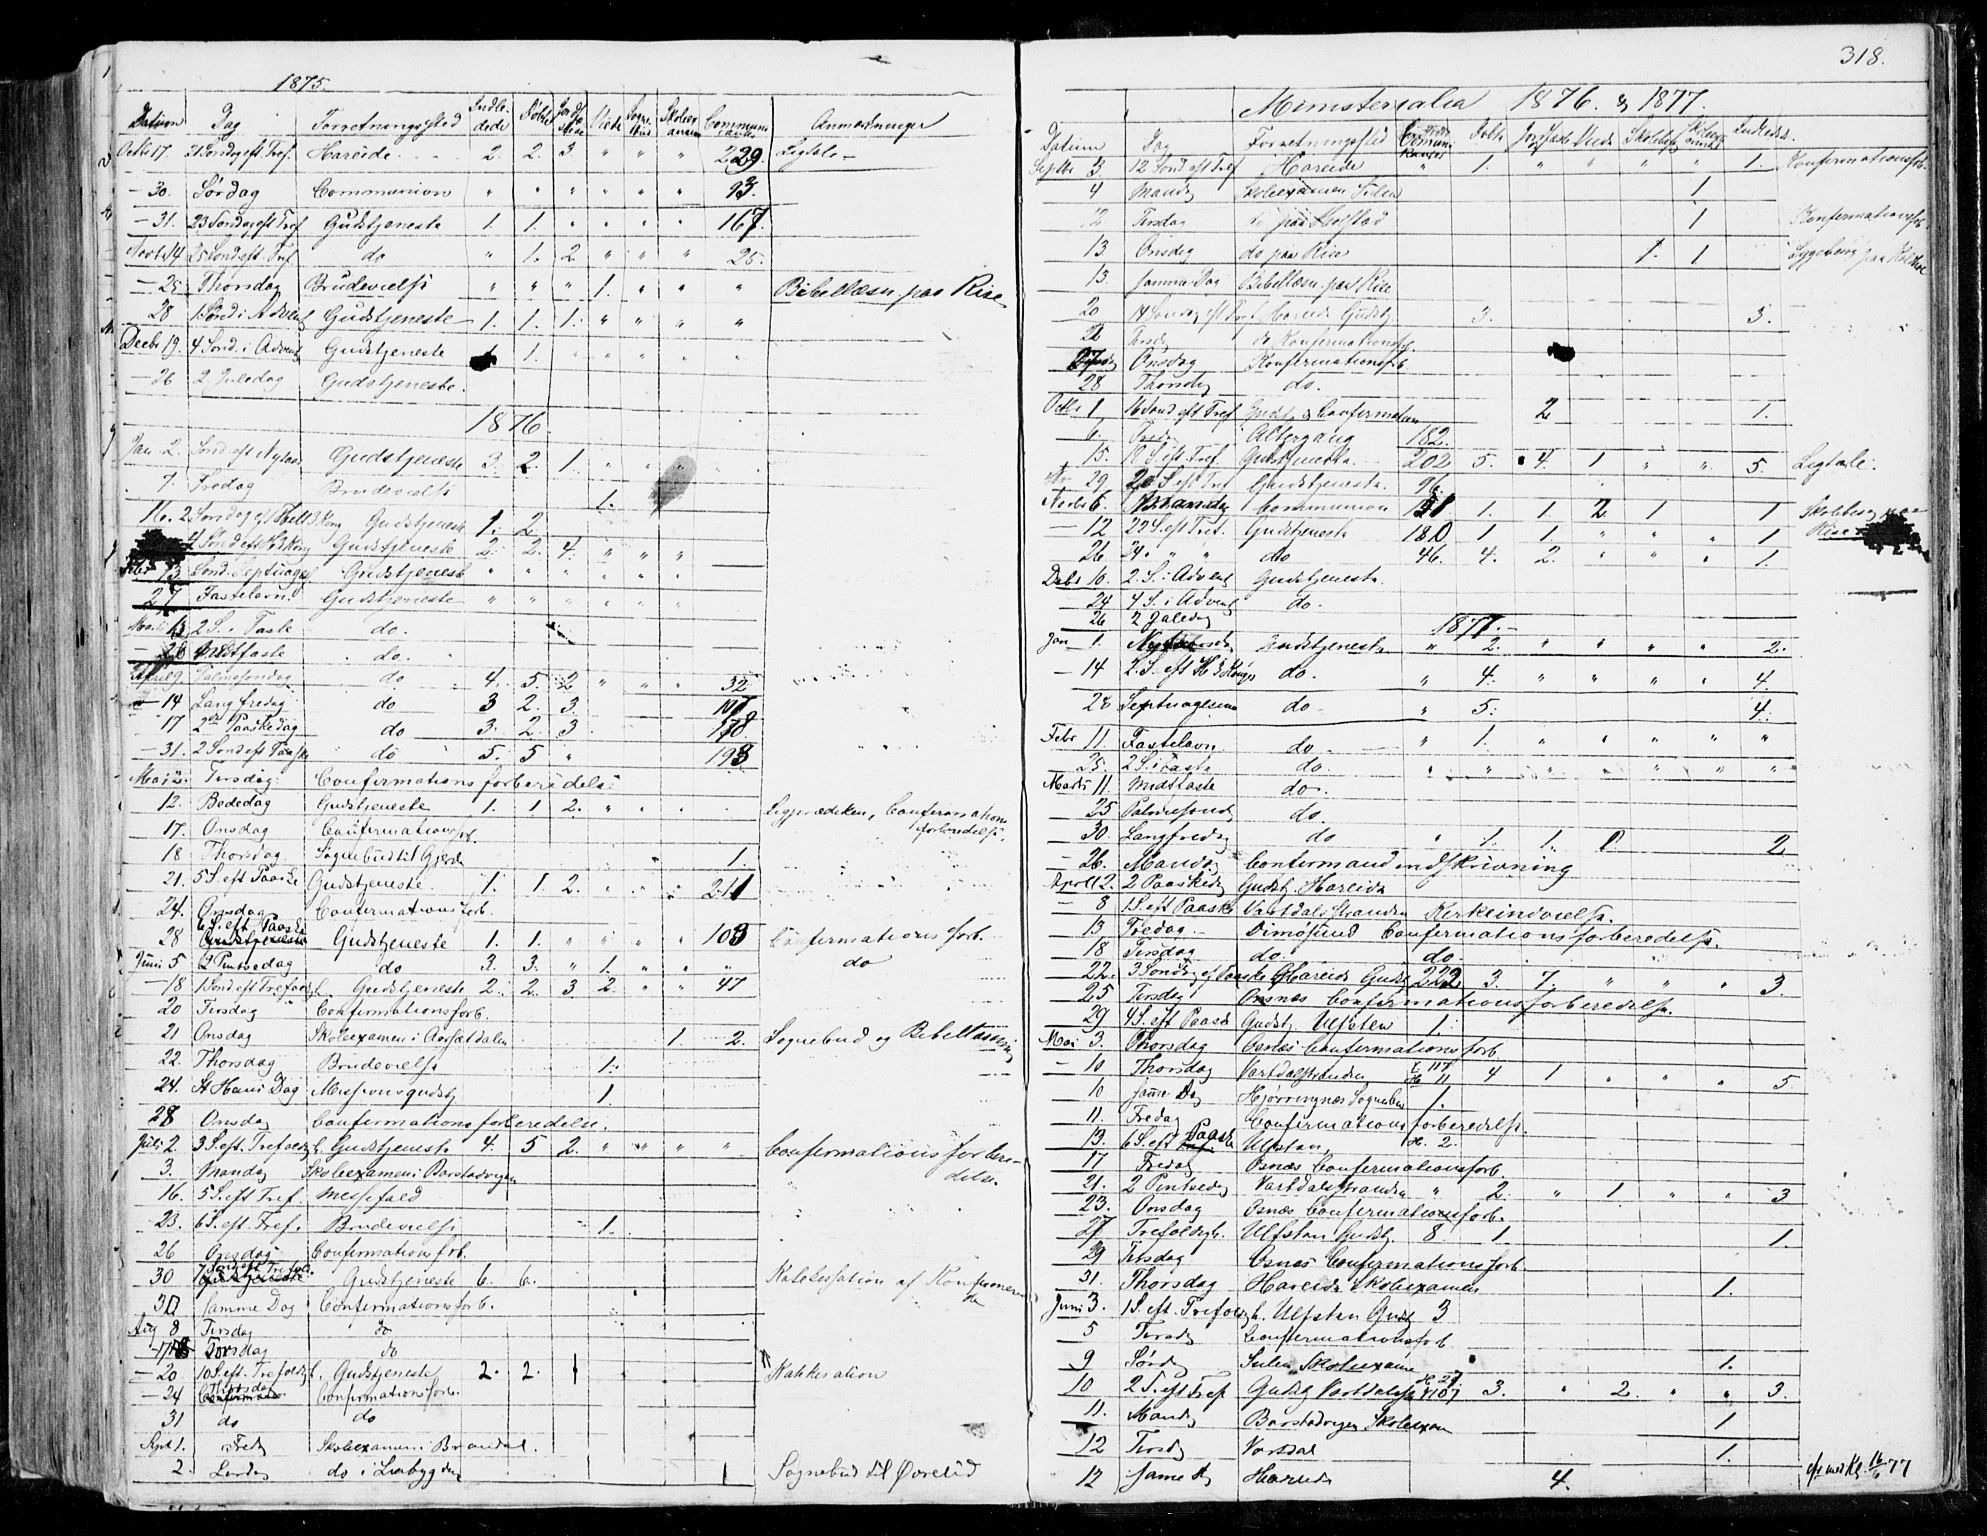 1875.
Datum Dag Forretningssted Indledede Døbte Jordfæstede Viede Sogne Skolexamen Communicanter Anmærkninger
Octbr 17. 21 Søndag eft Tref. Hareide 2. 2. 3. " " " 229. Ligtale
— 30. Lørdag Communion " " " " " " 93.
— 31. 23 Søndag eft Tref Gudstjeneste 1. 1. " " " " 167.
Novbr 14 25 Sønd. eft. Tref. do " 1. 2 " " " 25.
— 25 Thorsdag Brudevielse " " " 1. " " " Bibellæsn. paa Rise
28 1 Sønd i Advent Gudstjeneste 1. 1. 1. " " " "
Decbr 19. 4 Sønd. i Advent Gudstjeneste 1. " " " "
— 26 2 Juledag Gudstjeneste.
1876.
Jan 2. Sønd eft Nytaar Gudstjeneste 3. 2. 1. " " "
7. Fredag Brudevielse 1.
16. 2. Søndag eft Hell 3 Kong Gudstjeneste 1. 2
4 Sønd eft H 3 Kong Gudstjeneste 2. 2. 4. " " "
Febr 13. Sønd. Septuages Gudstjeneste " " " " " "
27 Fastelavn. Gudstjeneste " " " " " "
Marts 13 2 S. i Faste do.
— 26 Midtfaste do.
April 9. Palmesøndag do 4. 5. 2 " " " 32
— 14 Langfredag do 3 2. 3. 107
17 2den Paaskedag do 3. 2. 3 178
— 31. 2 Sønd eft Paaske do 5. 5 " 193
Mai 2. Tirsdag. Confirmationsforberedelse
12. Bededag Gudstjeneste 1. 1 2. " " " Ligprædiken, Confirmationsforberedelse.
17. Onsdag Confirmationsforb.
18 Thorsdag Sognebud til Gjerde 1.
21. 5 S. eft Paaske Gudstjeneste 1. 1. 2. " " " 211
24. Onsdag Confirmationsforb.
28 6 S. eft. Paaske Gudstjeneste 1. 1. " " " " 103 Confirmationsforb.
Juni 5 2 Pintsedag do 3. 3. " 1. " " " do
— 18 1 Sønd eft Trefoldigh. Gudstjeneste 2. 2. 3 2. " " 47
20 Tirsdag Confirmationsforb.
21 Onsdag Skoleexamen i Aarsætdalen 1. 2. Sognebud og Bibellæsning
22. Thorsdag Brudevielse 1.
24. St Hans Dag Missionsgudstj 1
28 Onsdag Confirmationsforberedelse.
Juli 2. 3 S. eft. Trefoldigh. Gudstjeneste 4. 5 2. " " " " Confirmationsforberedelse
3. Mandag Skoleexamen i Barstadvigen
16. 5 S. eft Tref. Messefald
— 23. 6 S. eft. Tref. Brudevielse 1.
26 Onsdag Confirmationsforb.
30 7 Sønd eft Trefold. Gudstjeneste 6. 6. Katekesation af Konfirmerede
30 Samme Dag Confirmationsforb.
Aug 8 Tirsdag do
Torsdag do
— 20 10 S. eft. Trefoldigh. Gudstjeneste 2. 2. 1 Katekesation
— 24 Thorsdag Confirmationsforb.
31 do do
Sept 1. Fredag Skoleexamen i Brandal.
2. Lørdag do i Liabygden 1 Sognebud til Øvrelid
318.
Ministerialia 1876. & 1877.
Datum Dag Forretningssted Communicanter Døbte Jordfæstede Viede Skolebesøg Skoleexamen Indledede.
Septbr 3 12 Sønd eft Tref Hareide " 1. " " " " 1. Konfirmationsforb.
4 Mandag Skoleexamen 1
12 Tirsdag do paa Holstad 1 Konfirmationsforb
13. Onsdag do paa Rise 1. 1. Sygebesøg paa
13. Samme Dag Bibellæsn. paa Rise
20 14 Søndag eft Tref Hareide Gudstj 3. 3.
Tirsd do Konfirmationsforb.
27 Onsdag Konfirmationsforb
28 Thorsdag do.
Octbr 1 16 Sønd eft Tref Gudst. & Confirmation 2 1.
Altergang 182.
15. 18 S. eft Tref. Gudstjeneste. 202 5. 4. 1 " " 5. Ligtale.
29 20 S. eft Tref Gudstjeneste. 96.
Novbr 6. Mandag Communion 1. 1 2. 1 1 Skolebesøg paa
— 12 22 S. eft Tref. Gudstjeneste 180 1 1. " " " 1 Rise
26 24 " " " do 46. 4. 2. " " " 1.
Debr 10. 2. S. i Advent Gudstjeneste.
24 4 S. i Advent do.
26 2 Juledag
1877.
Jan 1. Nytaarsdag Gudstjeneste " 2. " " " " 2.
— 14 2. S. eft H 3 Konger do. " 4. " " " " 4.
28 Septuagesima do. " 5. 4.
Febr 11. Fastelavn. do. " 1. " " " " "
25. 2 S. i Faste do. " " " " " " "
Marts 11. Midtfaste do.
25 Palmesøndag do.
30. Langfredag do " 1. 1. 2
— 26. Mandag Confirmandindskrivning
April 2. 2 Paaskedag Gudstj. Hareide
— 8 1 S. eft Paaske Vartdalsstranden Kirkeindvielse.
13 Fredag. Dimøsund Confirmationsforberedelse.
18 Tirsdag do. do.
22. 3 Søndag eft Paaske Hareide Gudstj 222 3. 7. " " " 3.
— 25 Tirsdag Osnæs Confirmationsforberedelse.
29 4 S. eft Paaske Gudstj Ulfsten 1.
Mai 3. Thorsdag Osnæs Confirmationsforb.
— 10 Thorsdag Vartdalsstranden V. 117 H 11 4 1 " " " 5.
10 Samme Dag Hjørringnes Sognebud 1.
11. Fredag Confirmationsforberedelse.
13. 6 S. eft Paaske Ulfsten, H. 2.
17 Fredag Osnæs Confirmationsforb.
21. 2 Pintsedag Vartdalsstranden " 2. " 1 " " 3
23. Onsdag Osnæs Confirmationsforb.
27 Trefoldigh. Ulfsten Gudstj 8 1. 1.
29 Tirsdag Osnæs Confirmationsforb.
31. Thorsdag Hareide Skoleexamen 1.
Juni 3. 1 S. eft. Trefoldigh. Ulfsten Gudstj 3
5 Tirsdag Confirmationsforb
9 Lørdag Sulen Skoleexamen 1.
10 2 S. eft Tref. Gudstj Vartdalsstr H. 27. V 107 3. " 2. " " 3.
11. Mandag Barstadvigen Skoleexamen 1
12 Tirsdag Vartdal 1.
12 Samme Dag Hareide 4. 16/6 77